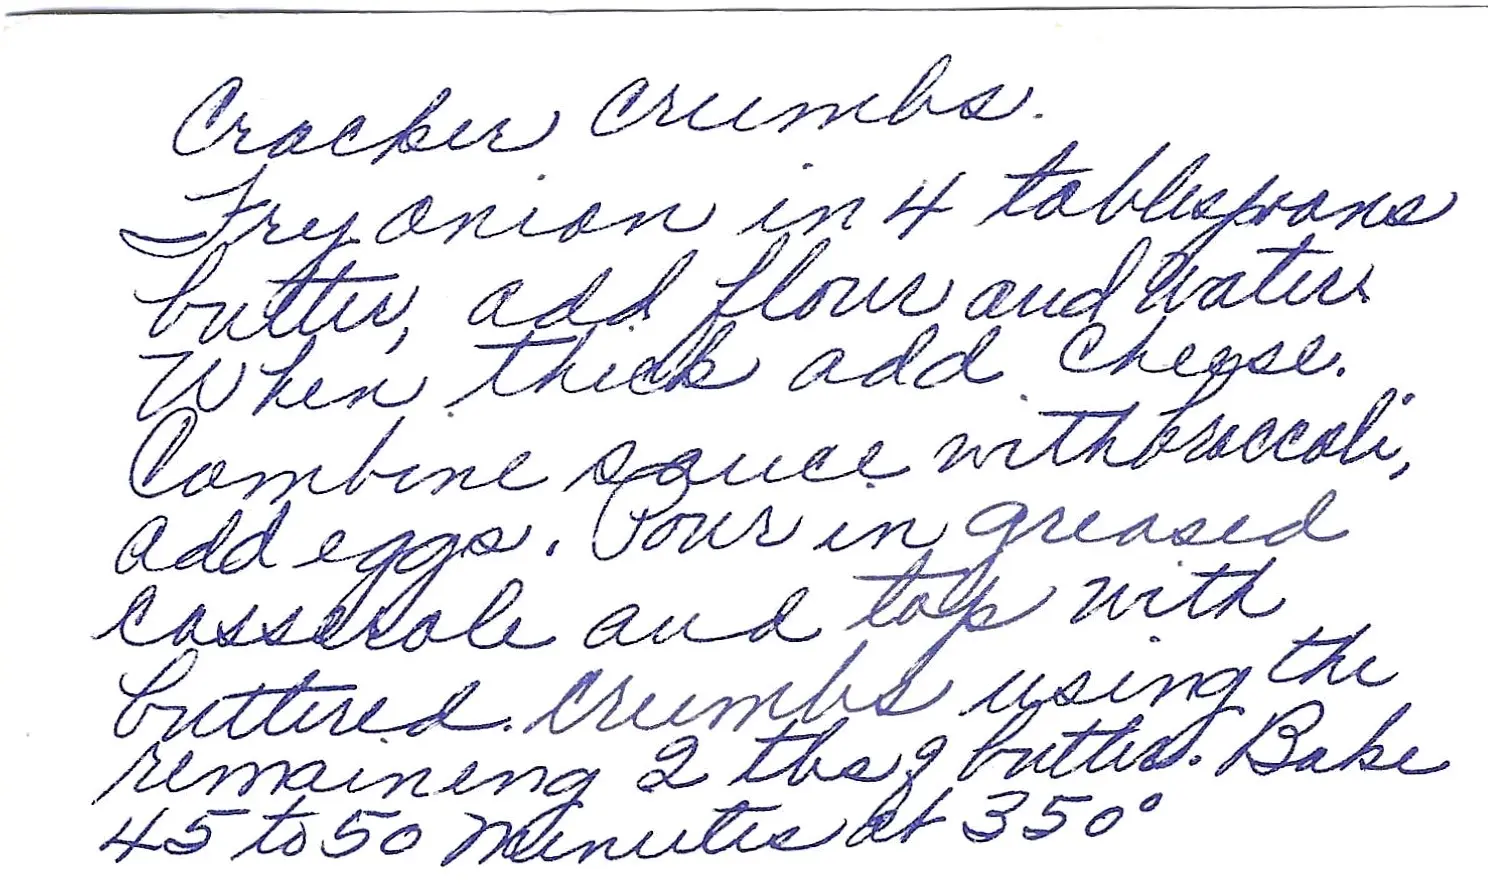 Cracker Crumbs.
Fry onion in 4 tablespoons
butter, add flour and water.
When thick add cheese.
Combine sauce with broccoli,
add eggs. Pour in greased
casserole and top with
buttered crumbs using the
remaining 2 tbs of butter. Bake
45 to 50 minutes at 350°